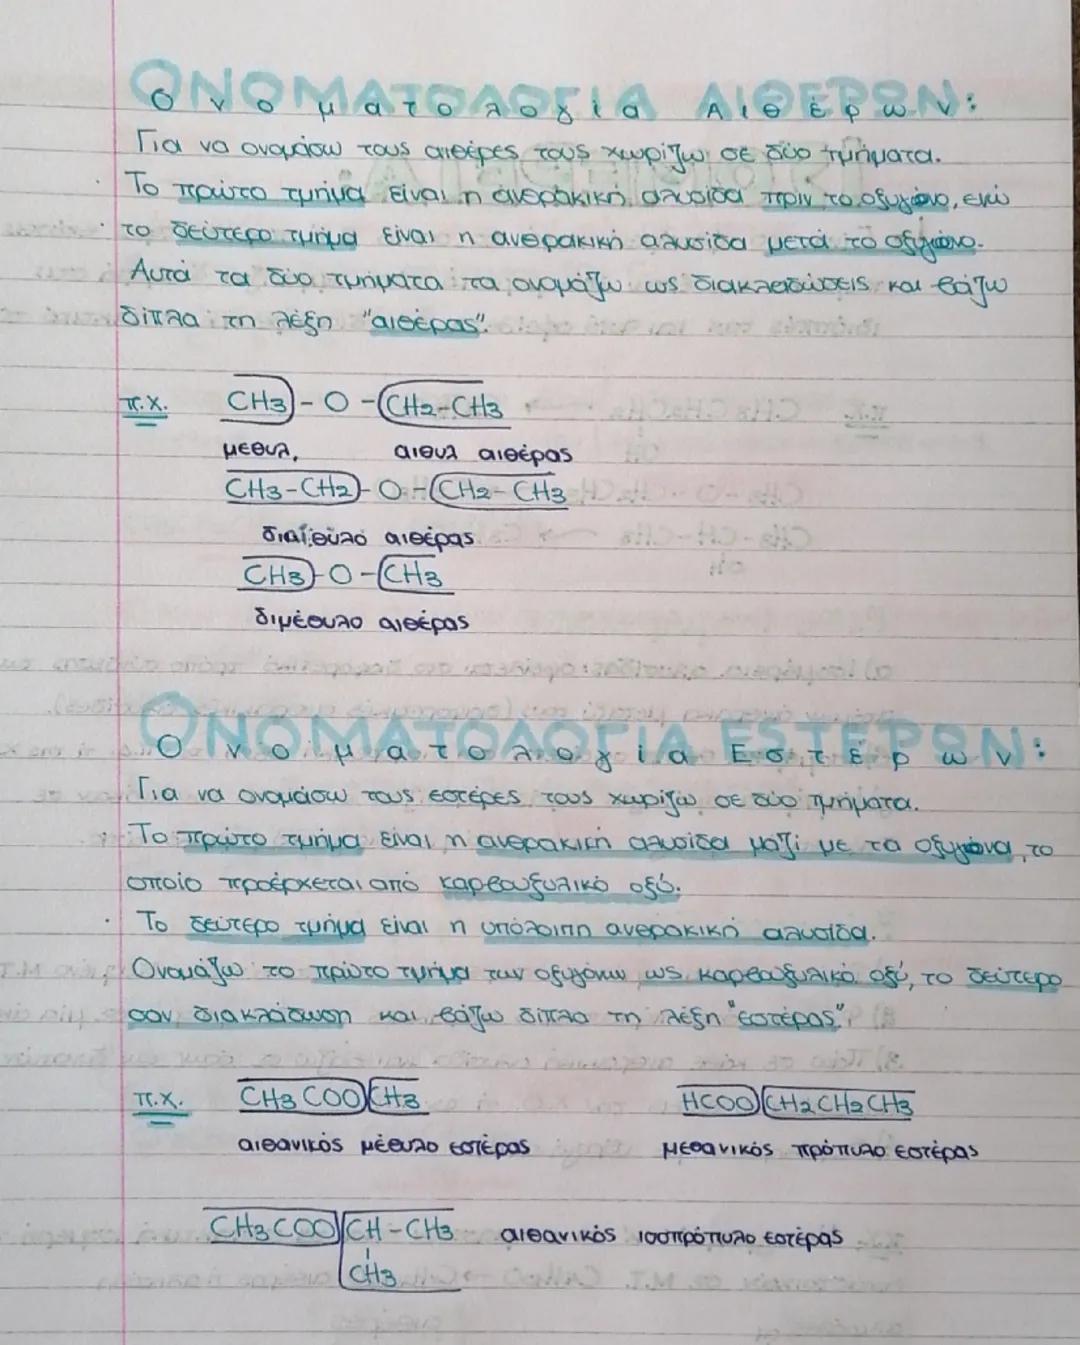 ΟΝΟΜΑΤΟΛΟΓΙΑ ΑΙΘΕΡΩΝ:
Ονοματολογία Αιθέρων:
Για να ονομάσω τους αιθέρες τους χωρίζω σε δύο τμήματα.
· Το πρώτο τμήμα είναι η ανθρακική αλυσίδα πριν το οξυγόνο, ενώ
· το δεύτερο τμήμα είναι η ανθρακική αλυσίδα μετά το οξυγόνο.
Αυτά τα δύο τμήματα τα ονομάζω ως διακλαδώσεις και βάζω
δίπλα τη λέξη "αιθέρας".
π.χ. CH3-O-CH2-CH3
μεθυλ, αιθυλ αιθέρας
CH3-CH2-O-CH2-CH3
διαίθυλο αιθέρας
CH3-O-CH3
διμέθυλο αιθέρας
ΟΝΟΜΑΤΟΛΟΓΙΑ ΕΣΤΕΡΩΝ:
Ονοματολογία Εστέρων:
Για να ονομάσω τους εστέρες τους χωρίζω σε δύο τμήματα.
· Το πρώτο τμήμα είναι η ανθρακική αλυσίδα μαζί με τα οξυγόνα, το
οποίο προέρχεται από καρβοξυλικό οξύ.
· Το δεύτερο τμήμα είναι η υπόλοιπη ανθρακική αλυσίδα.
Ονομάζω το πρώτο τμήμα των οξυγόνων ως καρβοξυλικό οξύ, το δεύτερο
σαν διακλάδωση και βάζω δίπλα τη λέξη "εστέρας".
π.χ. CH3COOCH3 HCOOCH2CH2CH3
αιθανικός μέθυλο εστέρας μεθανικός πρόπυλο εστέρας
CH3COOCH-CH3 αιθανικός ισοπρόπυλο εστέρας
CH3